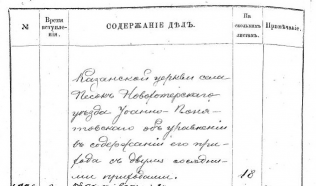 №
Время вступле-
ния.
СОДЕРЖАНІЕ ДѢЛЪ.
На
сколькихъ
листахъ.
Примѣчаніе.
Казанской церкви села
Пески Новохоперскаго
уѣзда Іоанно-
объ уравненіи
въ содержаніи его при-
хода съ двумя послѣдни-
ми приходами.
18